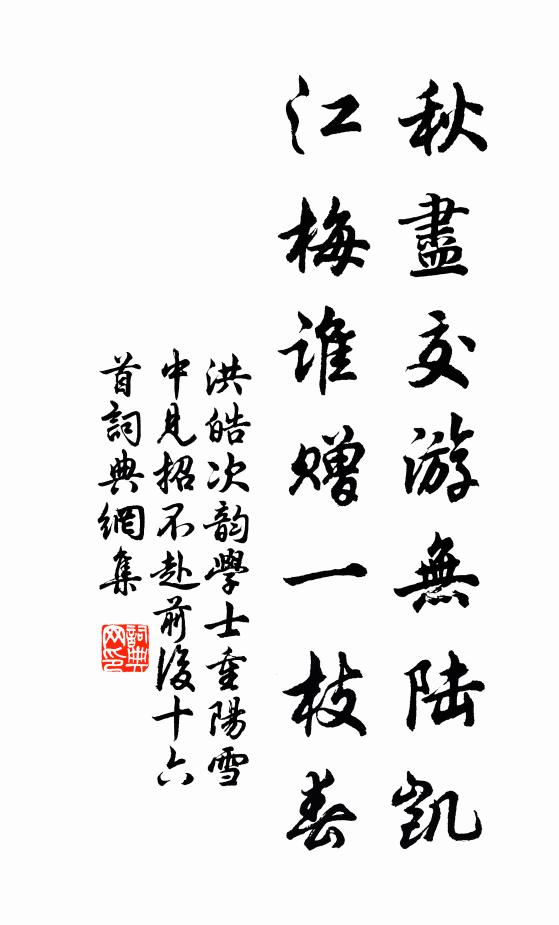 秋盡交游無陸凱
江梅誰贈一枝春
洪皓次韵學士重陽雪
中見招不赴前後十六
首詞典網集
詞典网印